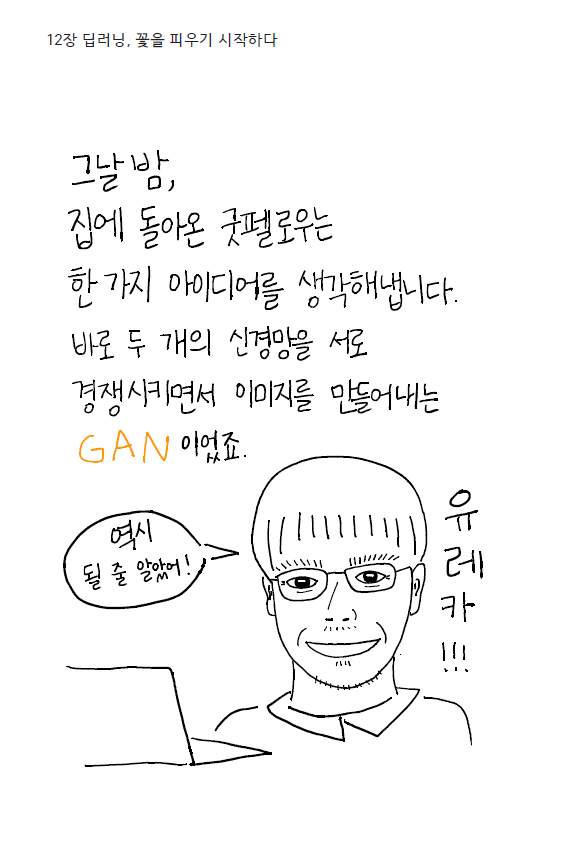 12장 딥러닝, 꽃을 피우기 시작하다
그날 밤,
집에 돌아온 굿펠로우는
한 가지 아이디어를 생각해냅니다.
바로 두 개의 신경망을 서로
경쟁시키면서 이미지를 만들어내는
GAN이었죠.
역시
될 줄 알았어!
유
레
카
!!!